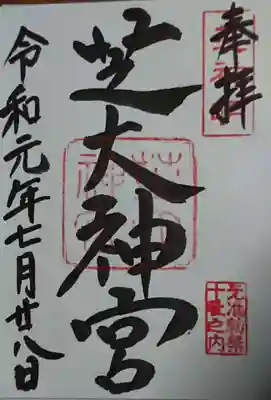 奉拝
芝大神宮
令和元年七月廿八日
元准勅祭
十社之内